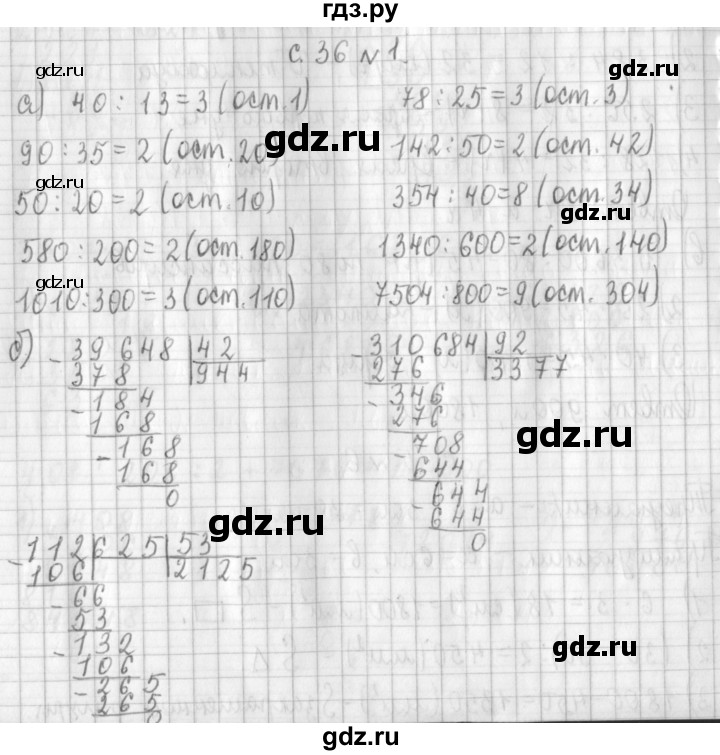 гдз.ру
с. 36 № 1.
а) 40 : 13 = 3 (ост. 1) 78 : 25 = 3 (ост. 3)
90 : 35 = 2 (ост. 20) 142 : 50 = 2 (ост. 42)
50 : 20 = 2 (ост. 10) 354 : 40 = 8 (ост. 34)
580 : 200 = 2 (ост. 180) 1340 : 600 = 2 (ост. 140)
1010 : 300 = 3 (ост. 110) 7504 : 800 = 9 (ост. 304)
б) - 39648 | 42
378 | 944
- 184
168
- 168
168
0
- 310684 | 92
276 | 3377
- 346
276
- 708
644
- 644
644
0
- 112625 | 53
106 | 2125
- 66
53
- 132
106
- 265
265
0
gdz.ru
gdz.ru
gdz.ru
gdz.ru
gdz.ru
gdz.ru
gdz.ru
gdz.ru
gdz.ru
gdz.ru
gdz.ru
gdz.ru